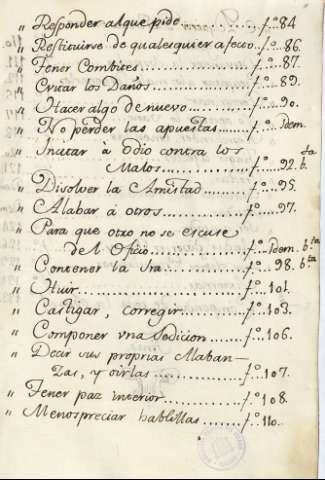 „ Responder alque pide........fº.84.
„ Restituirse de qualesquier afecto..fº..86.
„ Tener Combites...............fº...87.
„ Evitar los Daños.............fº...89.
„ Hacer algo de nuevo..........fº...90.
„ No perder las apuestas.......fº..Idem.
„ Incitar à odio contra los
Malos...........fº...92. b.ta
„ Disolver la Amistad.........fº...95.
„ Alabar á otros..............fº...97.
„ Para que otro no se escuse
del Oficio..............fº..Idem. b.ta
„ Contener la Ira.............fº..98. b.ta
„ Huir........................fº..101.
„ Castigar, corregir..........fº...103.
„ Componer vna Sedicion.......fº...106.
„ Decir sus proprias Alaban-
zas, y oirlas...........fº..107.
„ Tener paz interior..........fº..108.
„ Menospreciar hablillas......fº..110.